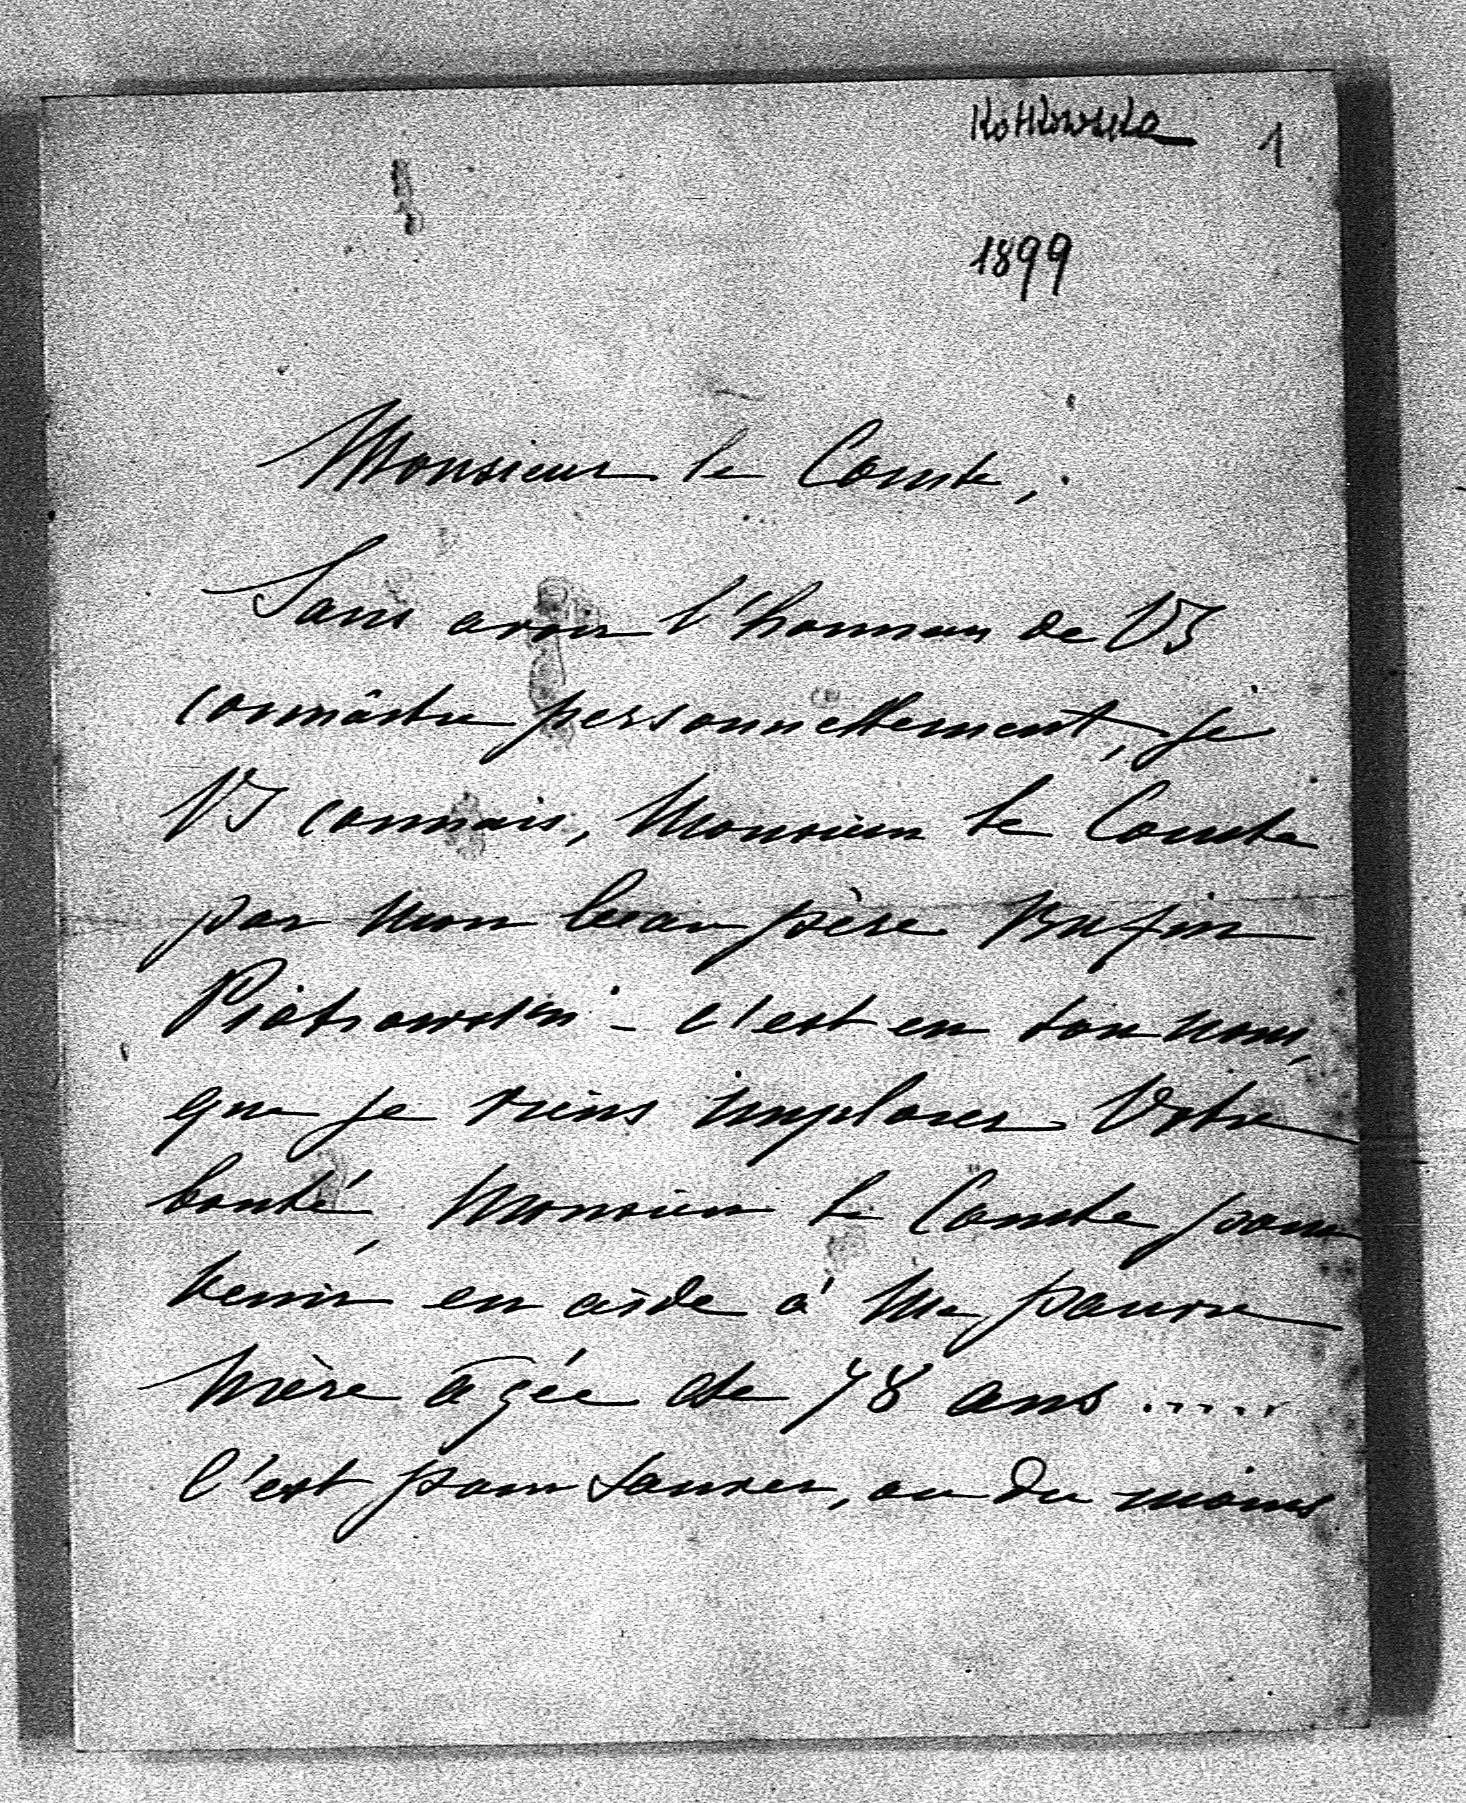 Kotkowska 1
1899
Monsieur le Comte,
Sans avoir l'honneur de VS
connâitre personnellement, je
VS connais, Monsieur le Comte
par mon beau père Rufin
Piotrowski - c'est en son nom,
que je viens implorer Votre
bonté, Monsieur le Comte pour
venir en aide à ma pauvre
mère âgée de 78 ans.....
C'est pour sauver, ou du moins